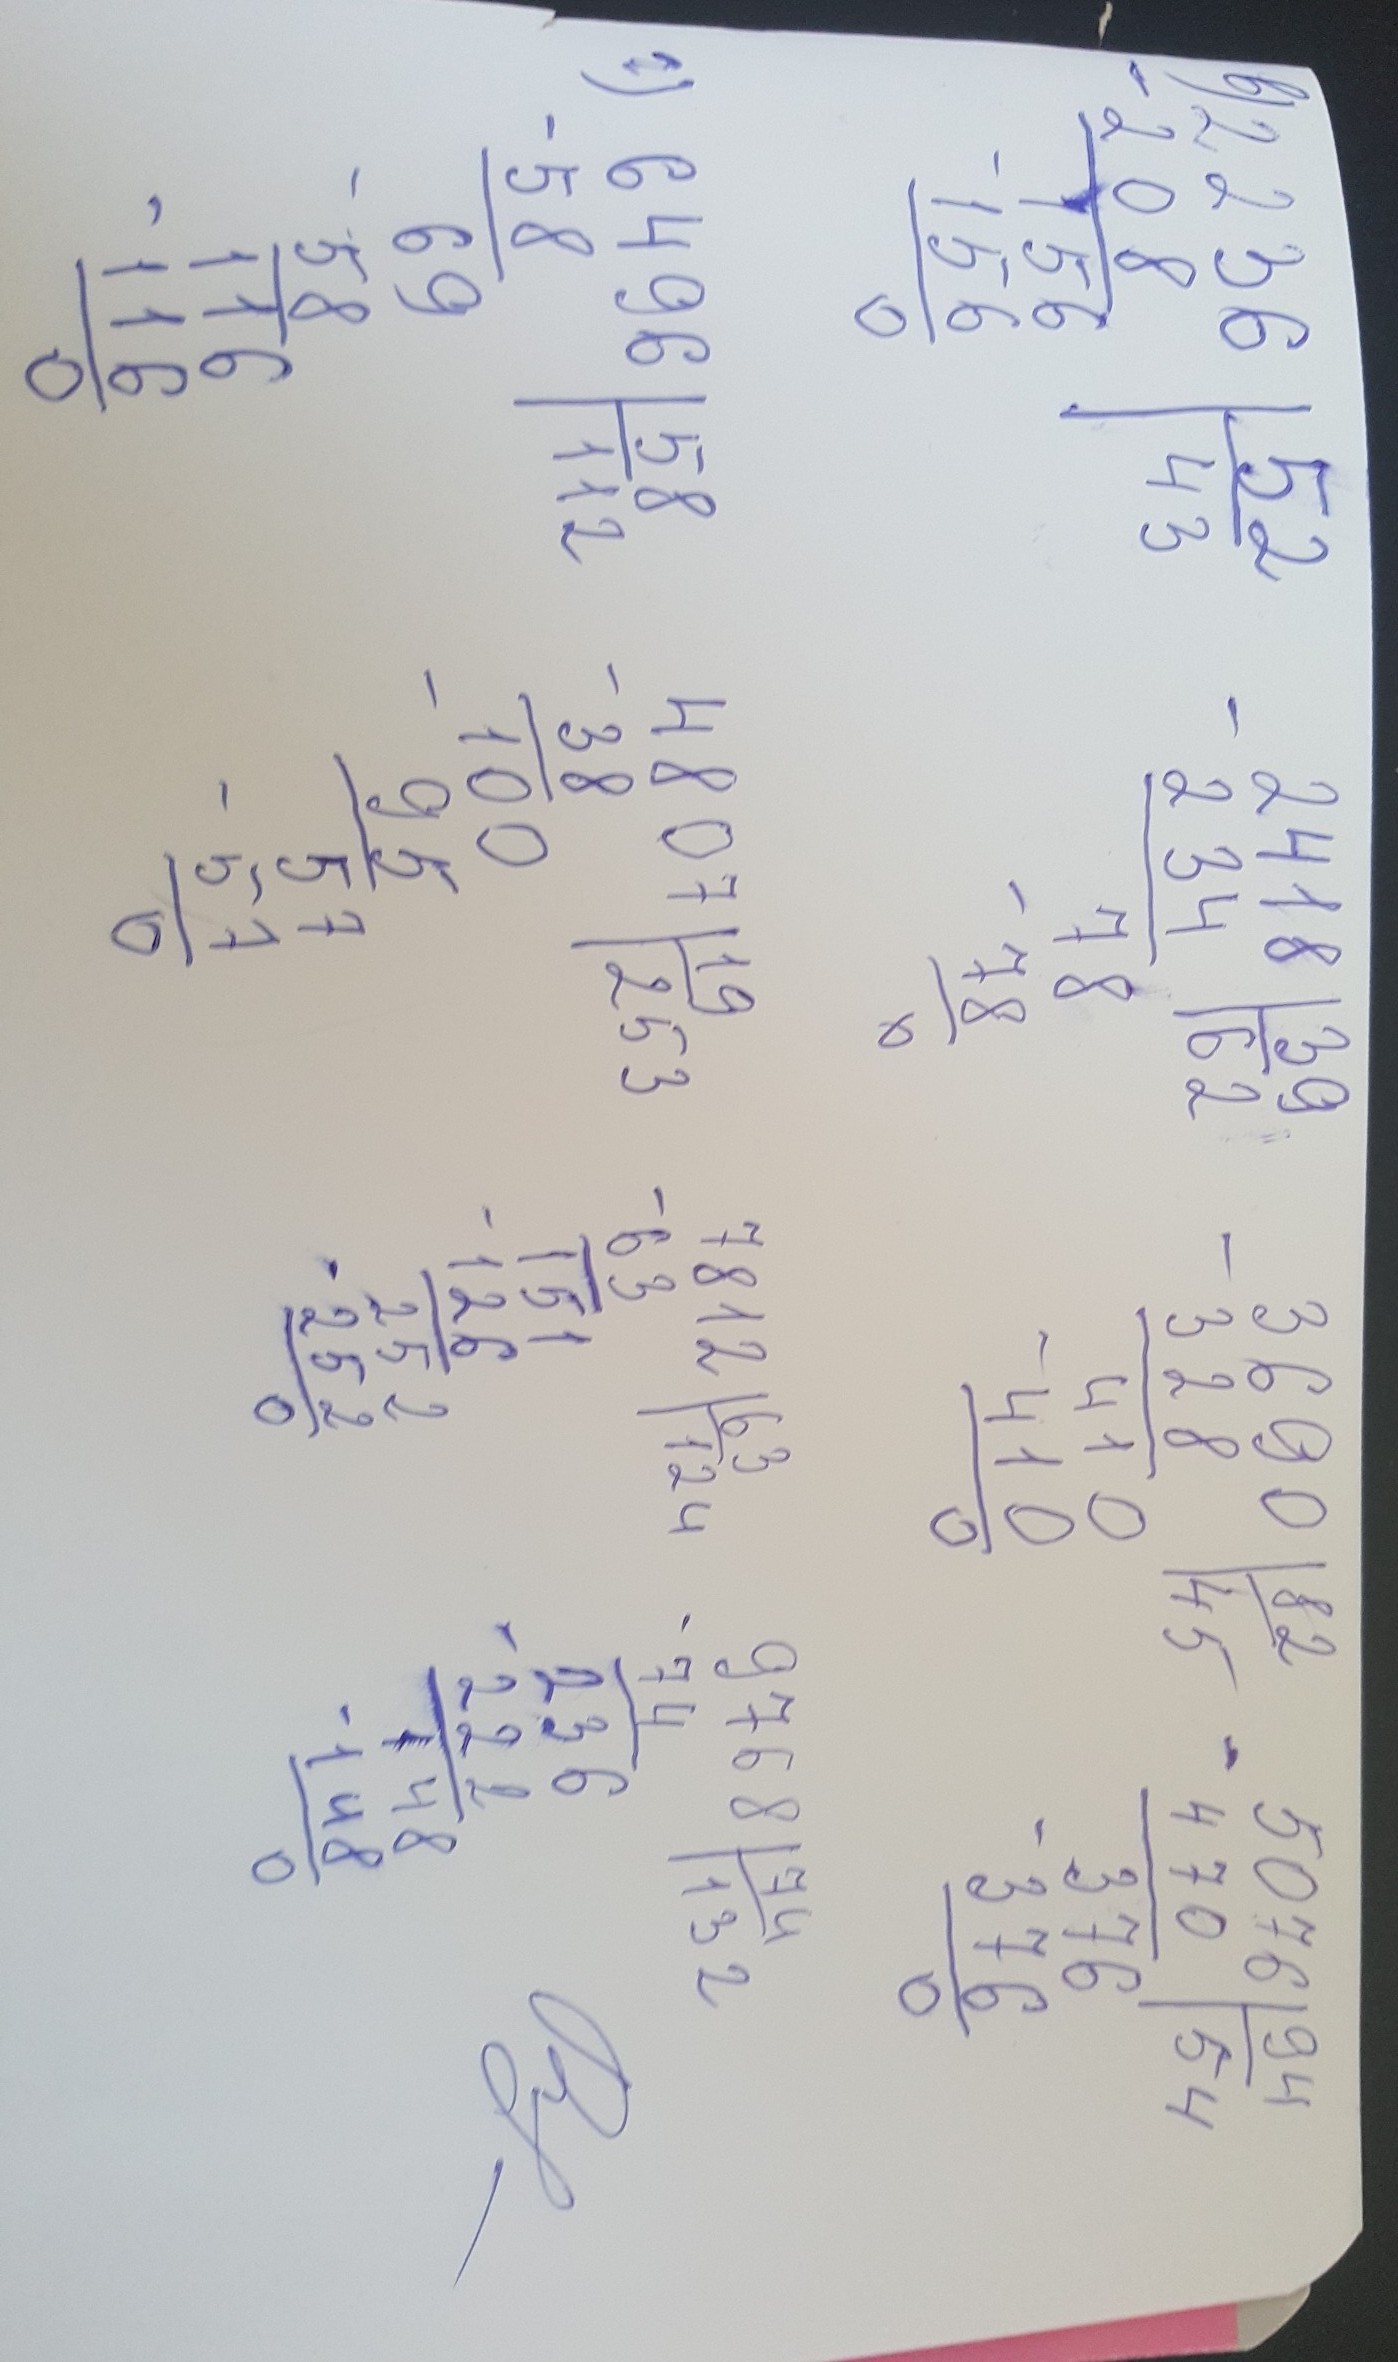 в) 2236 | 52 - 2418 | 39 - 3690 | 82 - 5076 | 94
- 208 | 43 234 | 62 328 | 45 470 | 54
156 78 410 376
- 156 - 78 - 410 - 376
0 0 0 0
г) 6496 | 58 4807 | 19 7812 | 63 9768 | 74
- 58 | 112 - 38 | 253 - 63 | 124 - 74 | 132
69 100 151 236
- 58 - 95 - 126 - 222
116 57 252 148
- 116 - 57 - 252 - 148
0 0 0 0